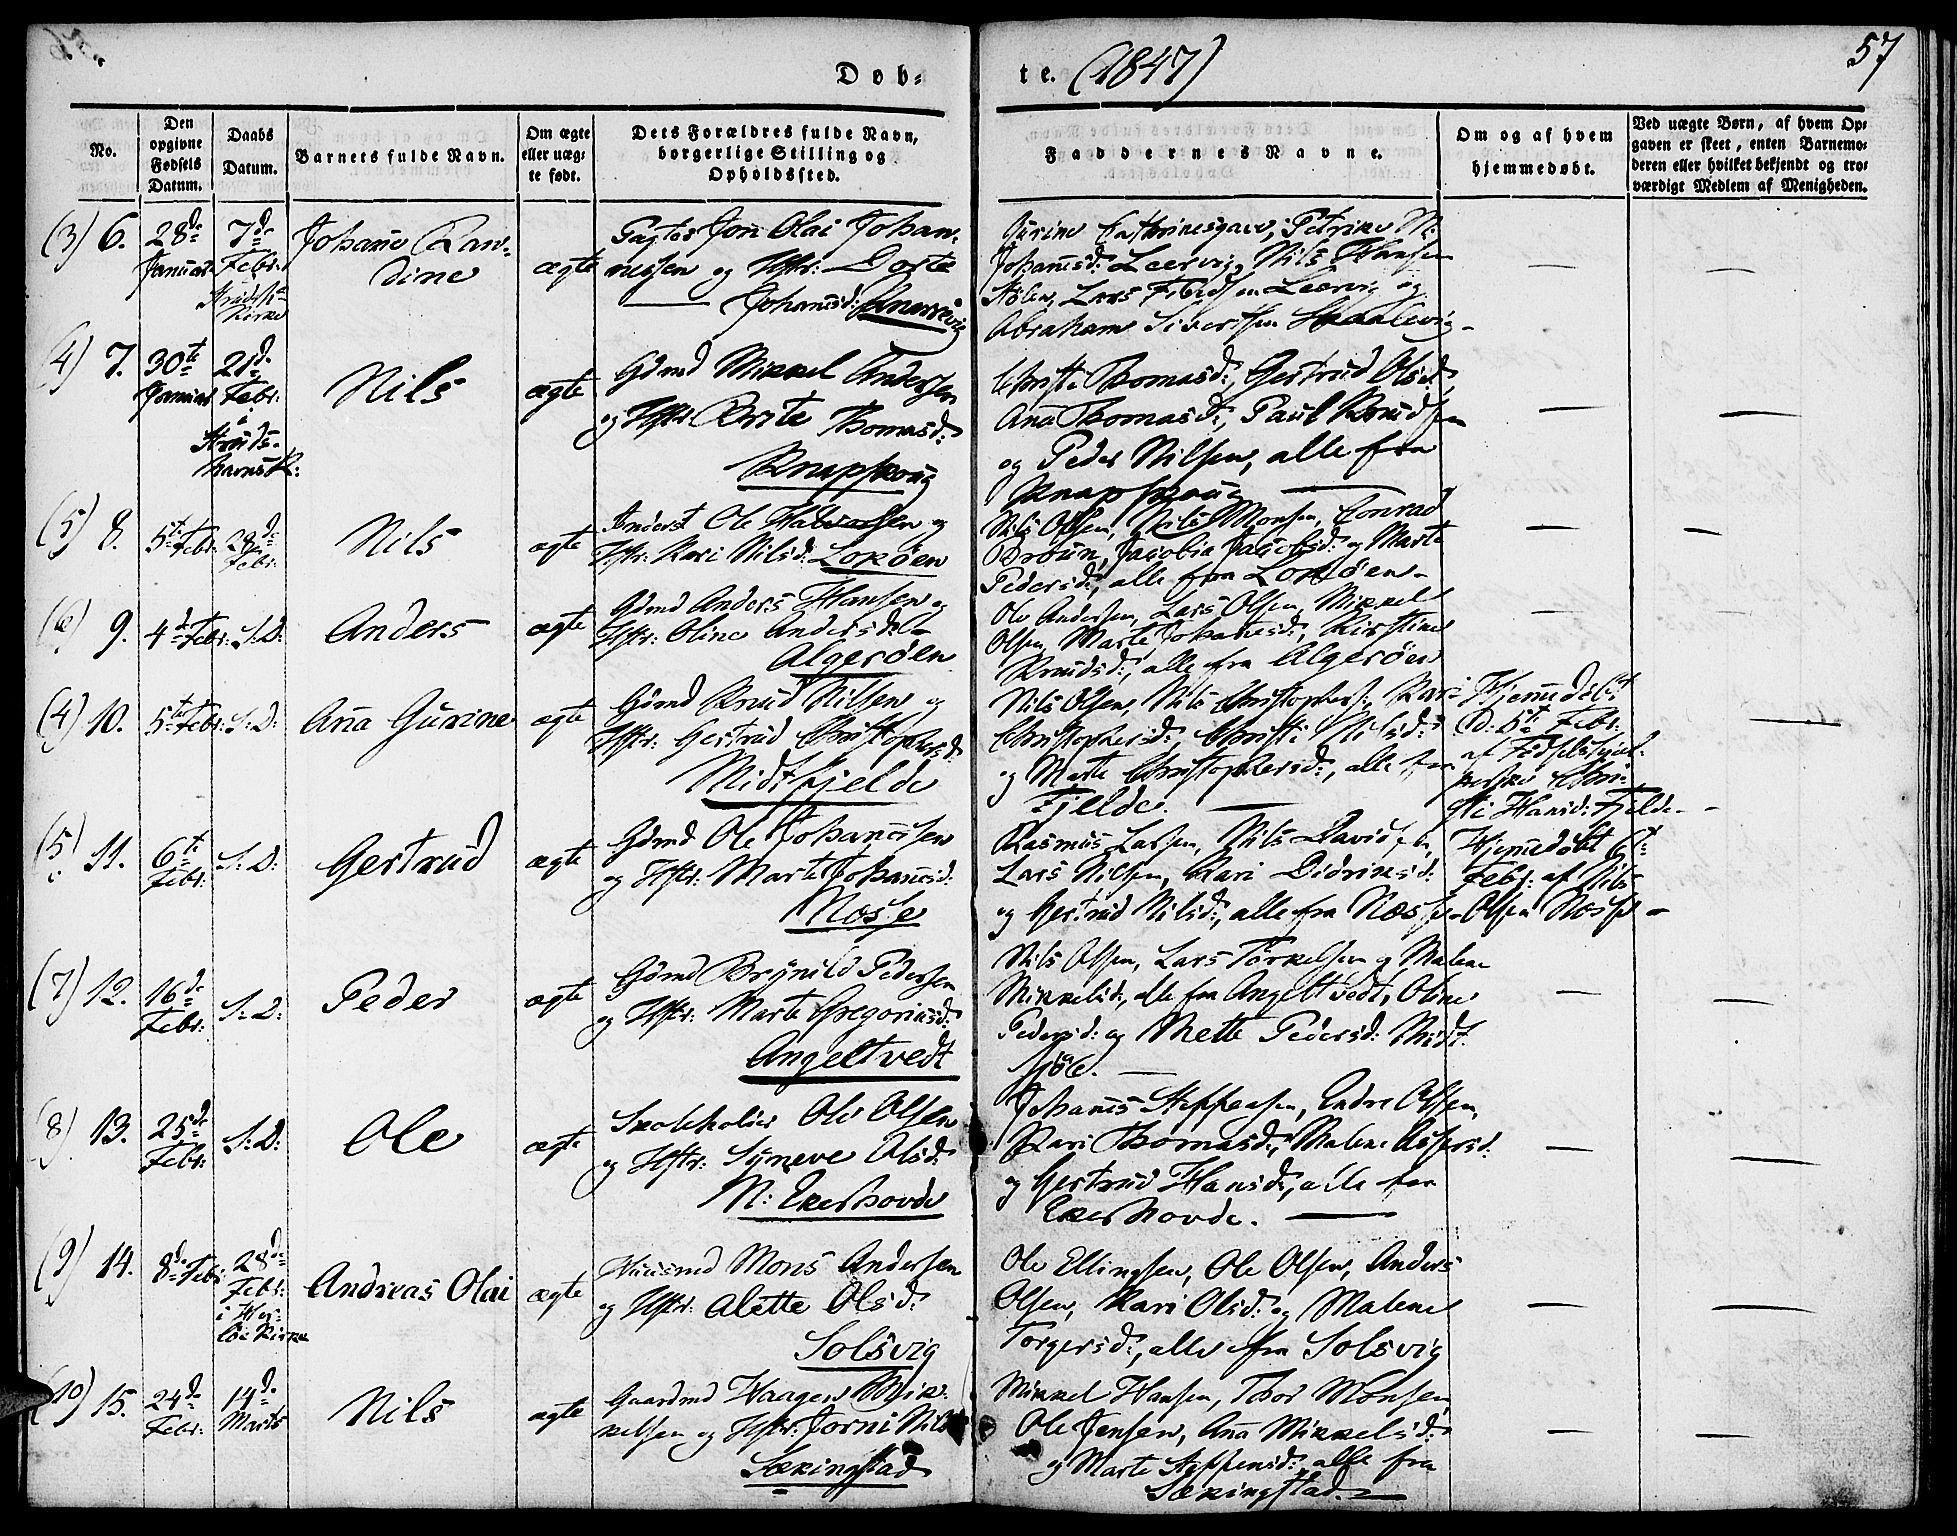 Døb-
te. (1847)
57
No.
Den opgivne Fødsels Datum.
Daabs Datum.
Barnets fulde Navn.
Om ægte eller uægte født.
Dets Forældres fulde Navn, borgerlige Stilling og Opholdssted.
Faddernes Navne.
Om og af hvem hjemmedøbt.
Ved uægte Børn, af hvem Opgaven er skeet, enten Barnemoderen eller hvilket bekjendt og troværdigt Medlem af Menigheden.
(3) 6.
28de Januar
7de Febr.
Kirke
Johanne
dine
ægte
Jon Olai Johan-
nessen og Hstr: Dorte
Johannesd:
Cathrinesgave, Petrine M.
Johannesd: Leervig, Nils Hansen
Lars Leervig og
Abraham Sivertsen
(4) 7.
30te Januar
21de Febr: i
Nils
ægte
Gdmd Mikkel Andersen
og Hstr: Brite Thomasd:
Knapskoug
Christi Thomasd:, Gertrud Olsd:,
Ana Thomasd:, Paul Knudsen
og Peder Nilsen, alle fra
Knapskoug
(5) 8.
5te Febr.
28de Febr:
Nils
ægte
Inderst Ole Halvorsen og
Hstr: Kari Nilsd: Lokøen
Nils Olsen, Nils Monsen, Conrad
Bruun, Jacobia Jacobsd: og Marte
Pedersd:, alle fra Lokøen
(6) 9.
4de Febr:
S:D:
Anders
ægte
Gdmd Anders Hansen og
Hstr: Oline Andersd:
Algerøen
Ole Andersen, Lars Olsen, Mikkel
Olsen, Marte Johannesd:, Kirstine
Knudsd:, alle fra Algerøen
(4) 10.
5te Febr:
S:D:
Aña Gurine
ægte
Gdmd Knud Nilsen og
Hstr: Gertrud Christophersd:
Midtfjelde
Nils Olsen, Nils Christophers:, Kari
Christophersd:, Christi Nilsd:
og Marte Christophersd:, alle fra
Fjelde.
Hjemedøbt
D: 5te Febr:
af Fødselshjæl-
Chri-
sti Hansd: Fjelde
(5) 11.
6te Febr:
S:D:
Gertrud
ægte
Gdmd Ole Johannesen
og Hstr: Marte Johannesd:
Nøsse
Rasmus Larsen, Nils Davidsen,
Lars Nilsen, Kari Didriksd:
og Gertrud Nilsd:, alle fra
Hjemedøbt 6te
Febr: af Nils
Olsen
(7) 12.
16de Febr:
S:D:
Peder
ægte
Gdmd Brynild Pedersen
og Hstr: Marte Gregoriusd:
Angeltvedt
Nils Olsen, Lars Tørkelsen og Malene
Mikkelsd:, alle fra Angeltvedt, Oline
Pedersd: og Mette Pedersd: Midt-
siøe.
(8) 13.
25de Febr:
S:D:
Ole
ægte
Skoleholder Ole Olsen
og Hstr: Syneve Olsd:
N: Ekerhovde
Johanes Steffensen, Endre Olsen,
Kari Thomasd:, Malene
og Gertrud Hansd:, alle fra
Ekerhovde.
(9) 14.
8de Febr:
28de Febr: i
Kirke
Andreas Olai
ægte
Huusmd Mons Andersen
og Hstr: Alette Olsd:
Solsvig
Ole Ellingsen, Ole Olsen, Anders
Olsen, Kari Olsd: og Malene
Torgersd:, alle fra Solsvig
(10) 15.
24de Febr:
14de Marts
Nils
ægte
Gaardmd Haagen Mik-
kelsen og Hstr: Jorni
Sækingstad
Mikkel Hansen, Thor Monsen,
Ole Jensen, Ana Mikkelsd:
og Marte Steffensd:, alle fra
Sækingstad.